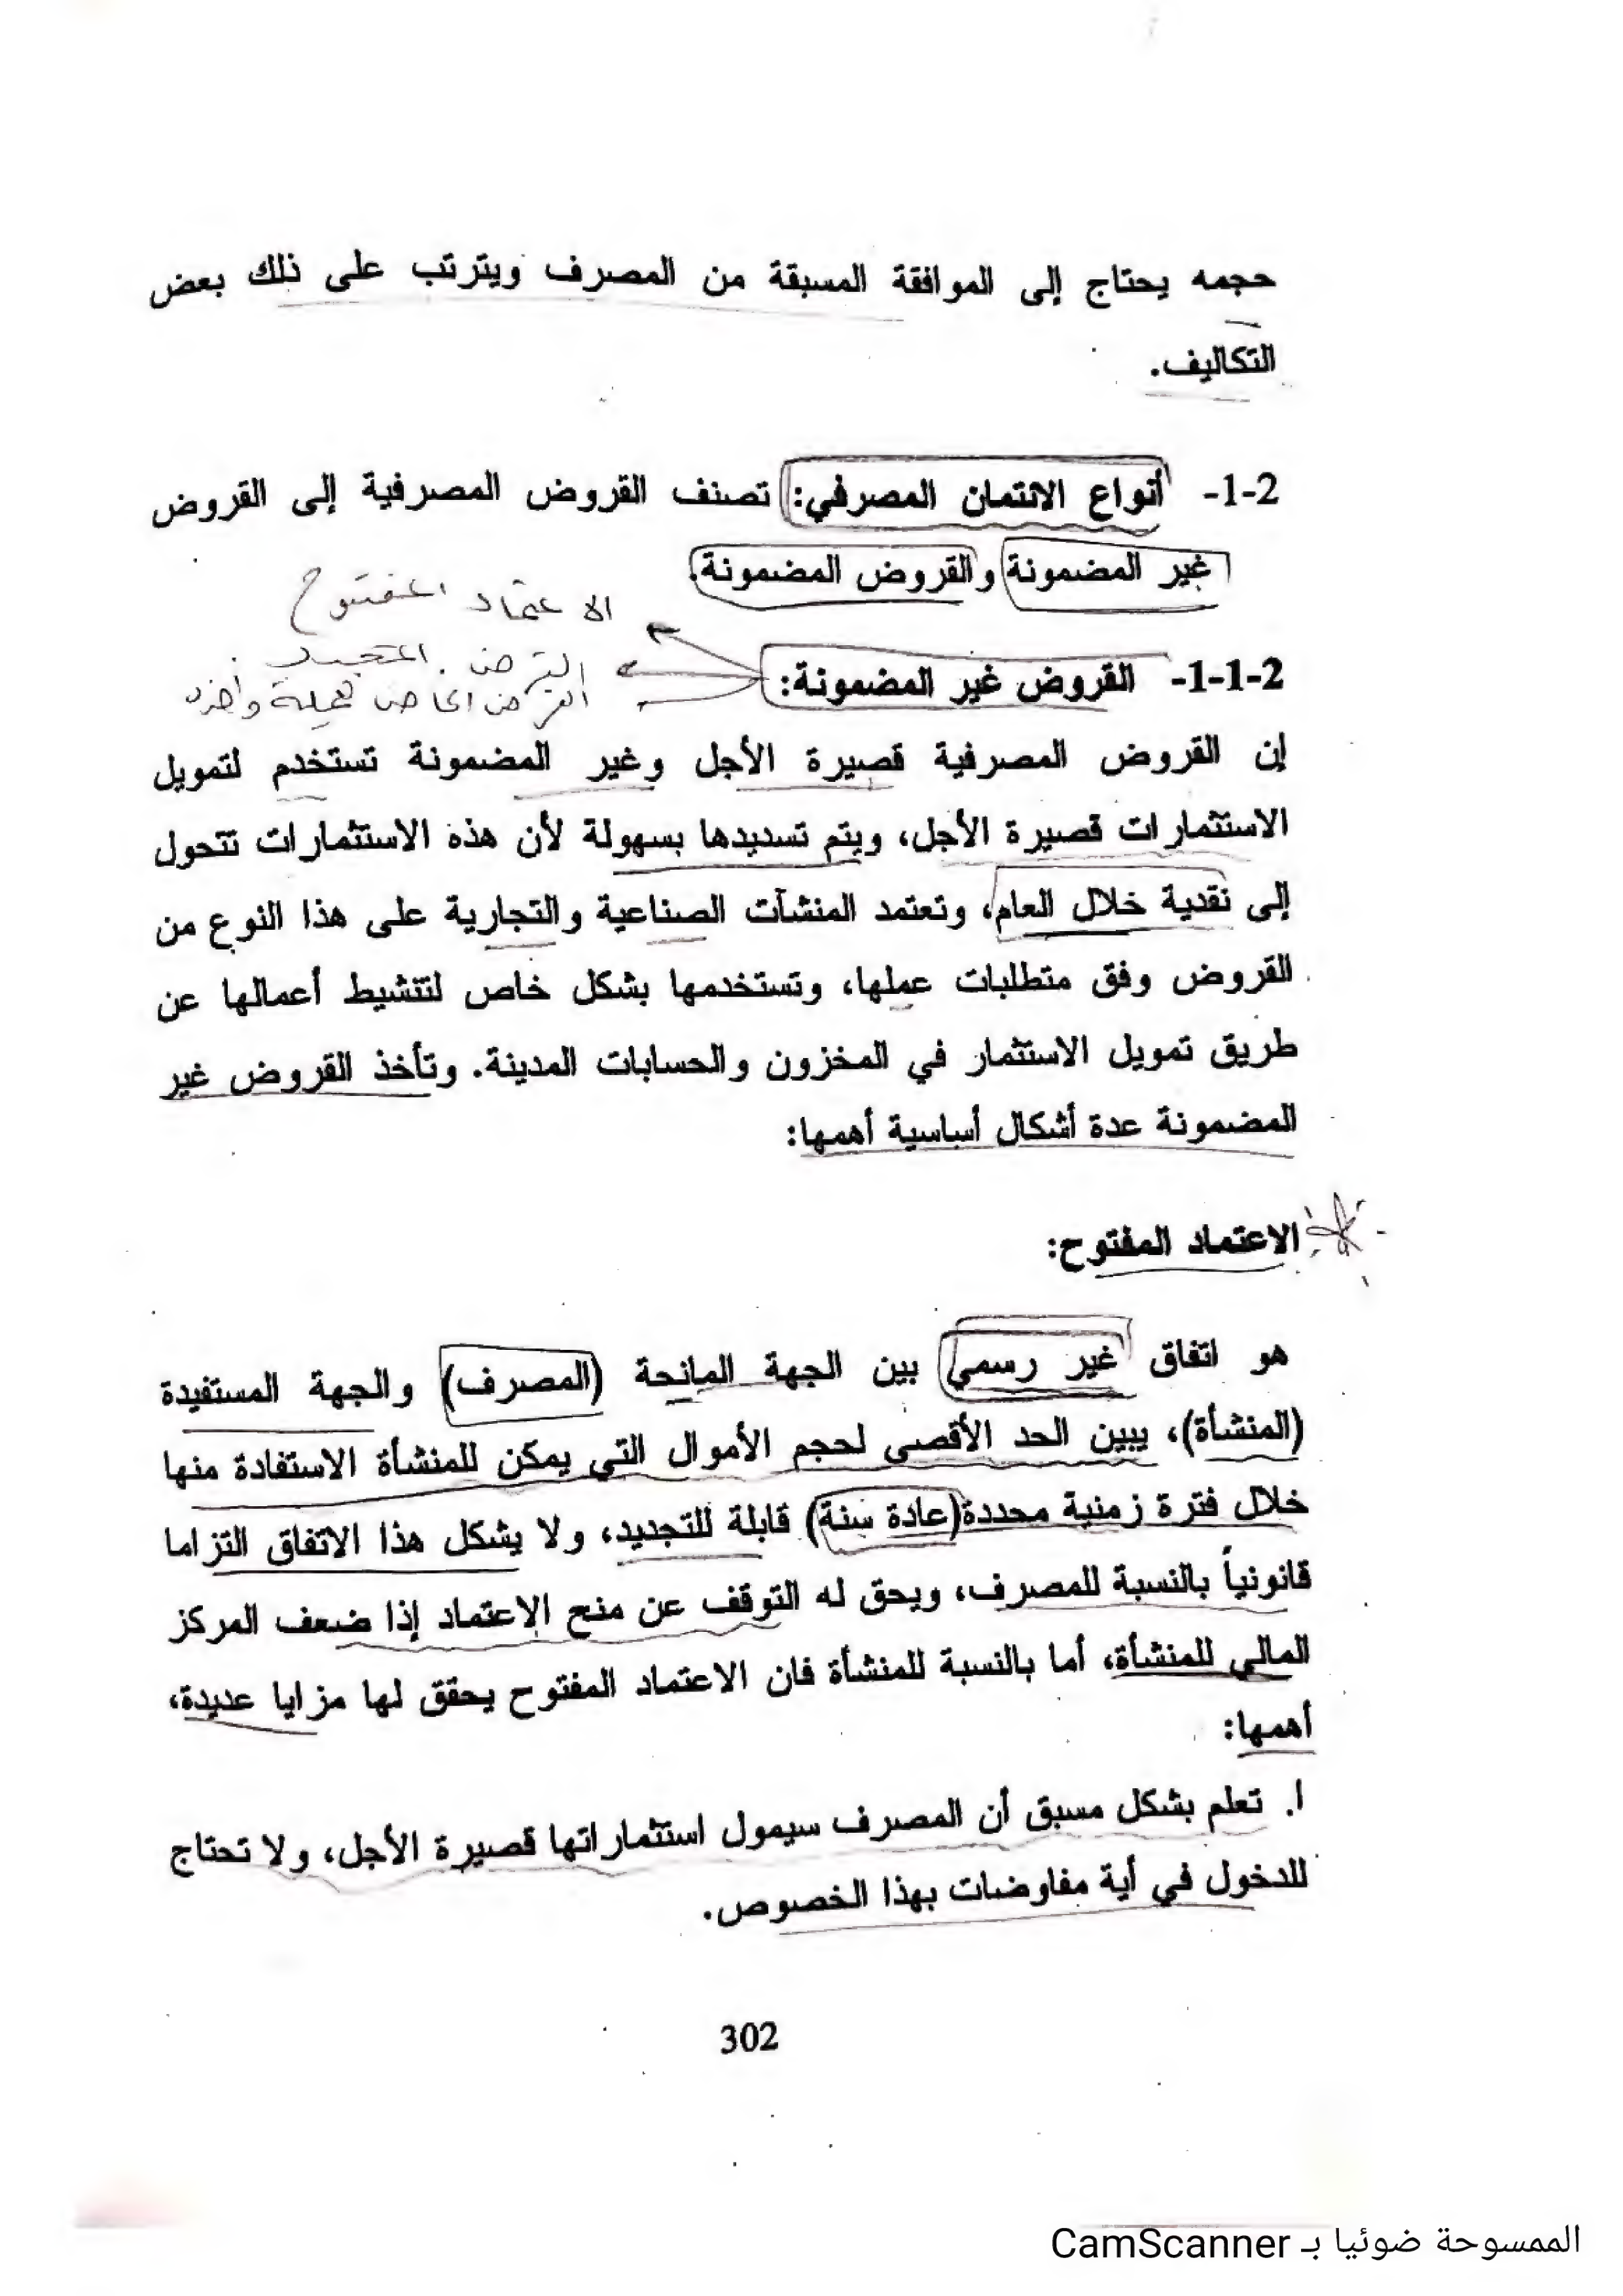 حجمه يحتاج إلى الموافقة المسبقة من المصرف ويترتب على ذلك بعض
التكاليف.
2-1- أنواع الائتمان المصرفي: تصنف القروض المصرفية إلى القروض
غير المضمونة والقروض المضمونة.
الاعتماد المفتوح
القرض المتجدد
القرض الخاص بعملية واحدة
2-1-1- القروض غير المضمونة:
إن القروض المصرفية قصيرة الأجل وغير المضمونة تستخدم لتمويل
الاستثمارات قصيرة الأجل، ويتم تسديدها بسهولة لأن هذه الاستثمارات تتحول
إلى نقدية خلال العام، وتعتمد المنشآت الصناعية والتجارية على هذا النوع من
القروض وفق متطلبات عملها، وتستخدمها بشكل خاص لتنشيط أعمالها عن
طريق تمويل الاستثمار في المخزون والحسابات المدينة. وتأخذ القروض غير
المضمونة عدة أشكال أساسية أهمها:
الاعتماد المفتوح:
هو اتفاق غير رسمي بين الجهة المانحة (المصرف) والجهة المستفيدة
(المنشأة)، يبين الحد الأقصى لحجم الأموال التي يمكن للمنشأة الاستفادة منها
خلال فترة زمنية محددة(عادة سنة) قابلة للتجديد، ولا يشكل هذا الاتفاق التزاما
قانونياً بالنسبة للمصرف، ويحق له التوقف عن منح الاعتماد إذا ضعف المركز
المالي للمنشأة، أما بالنسبة للمنشأة فان الاعتماد المفتوح يحقق لها مزايا عديدة،
أهمها:
ا. تعلم بشكل مسبق أن المصرف سيمول استثماراتها قصيرة الأجل، ولا تحتاج
للدخول في أية مفاوضات بهذا الخصوص.
302
الممسوحة ضوئيا بـ CamScanner